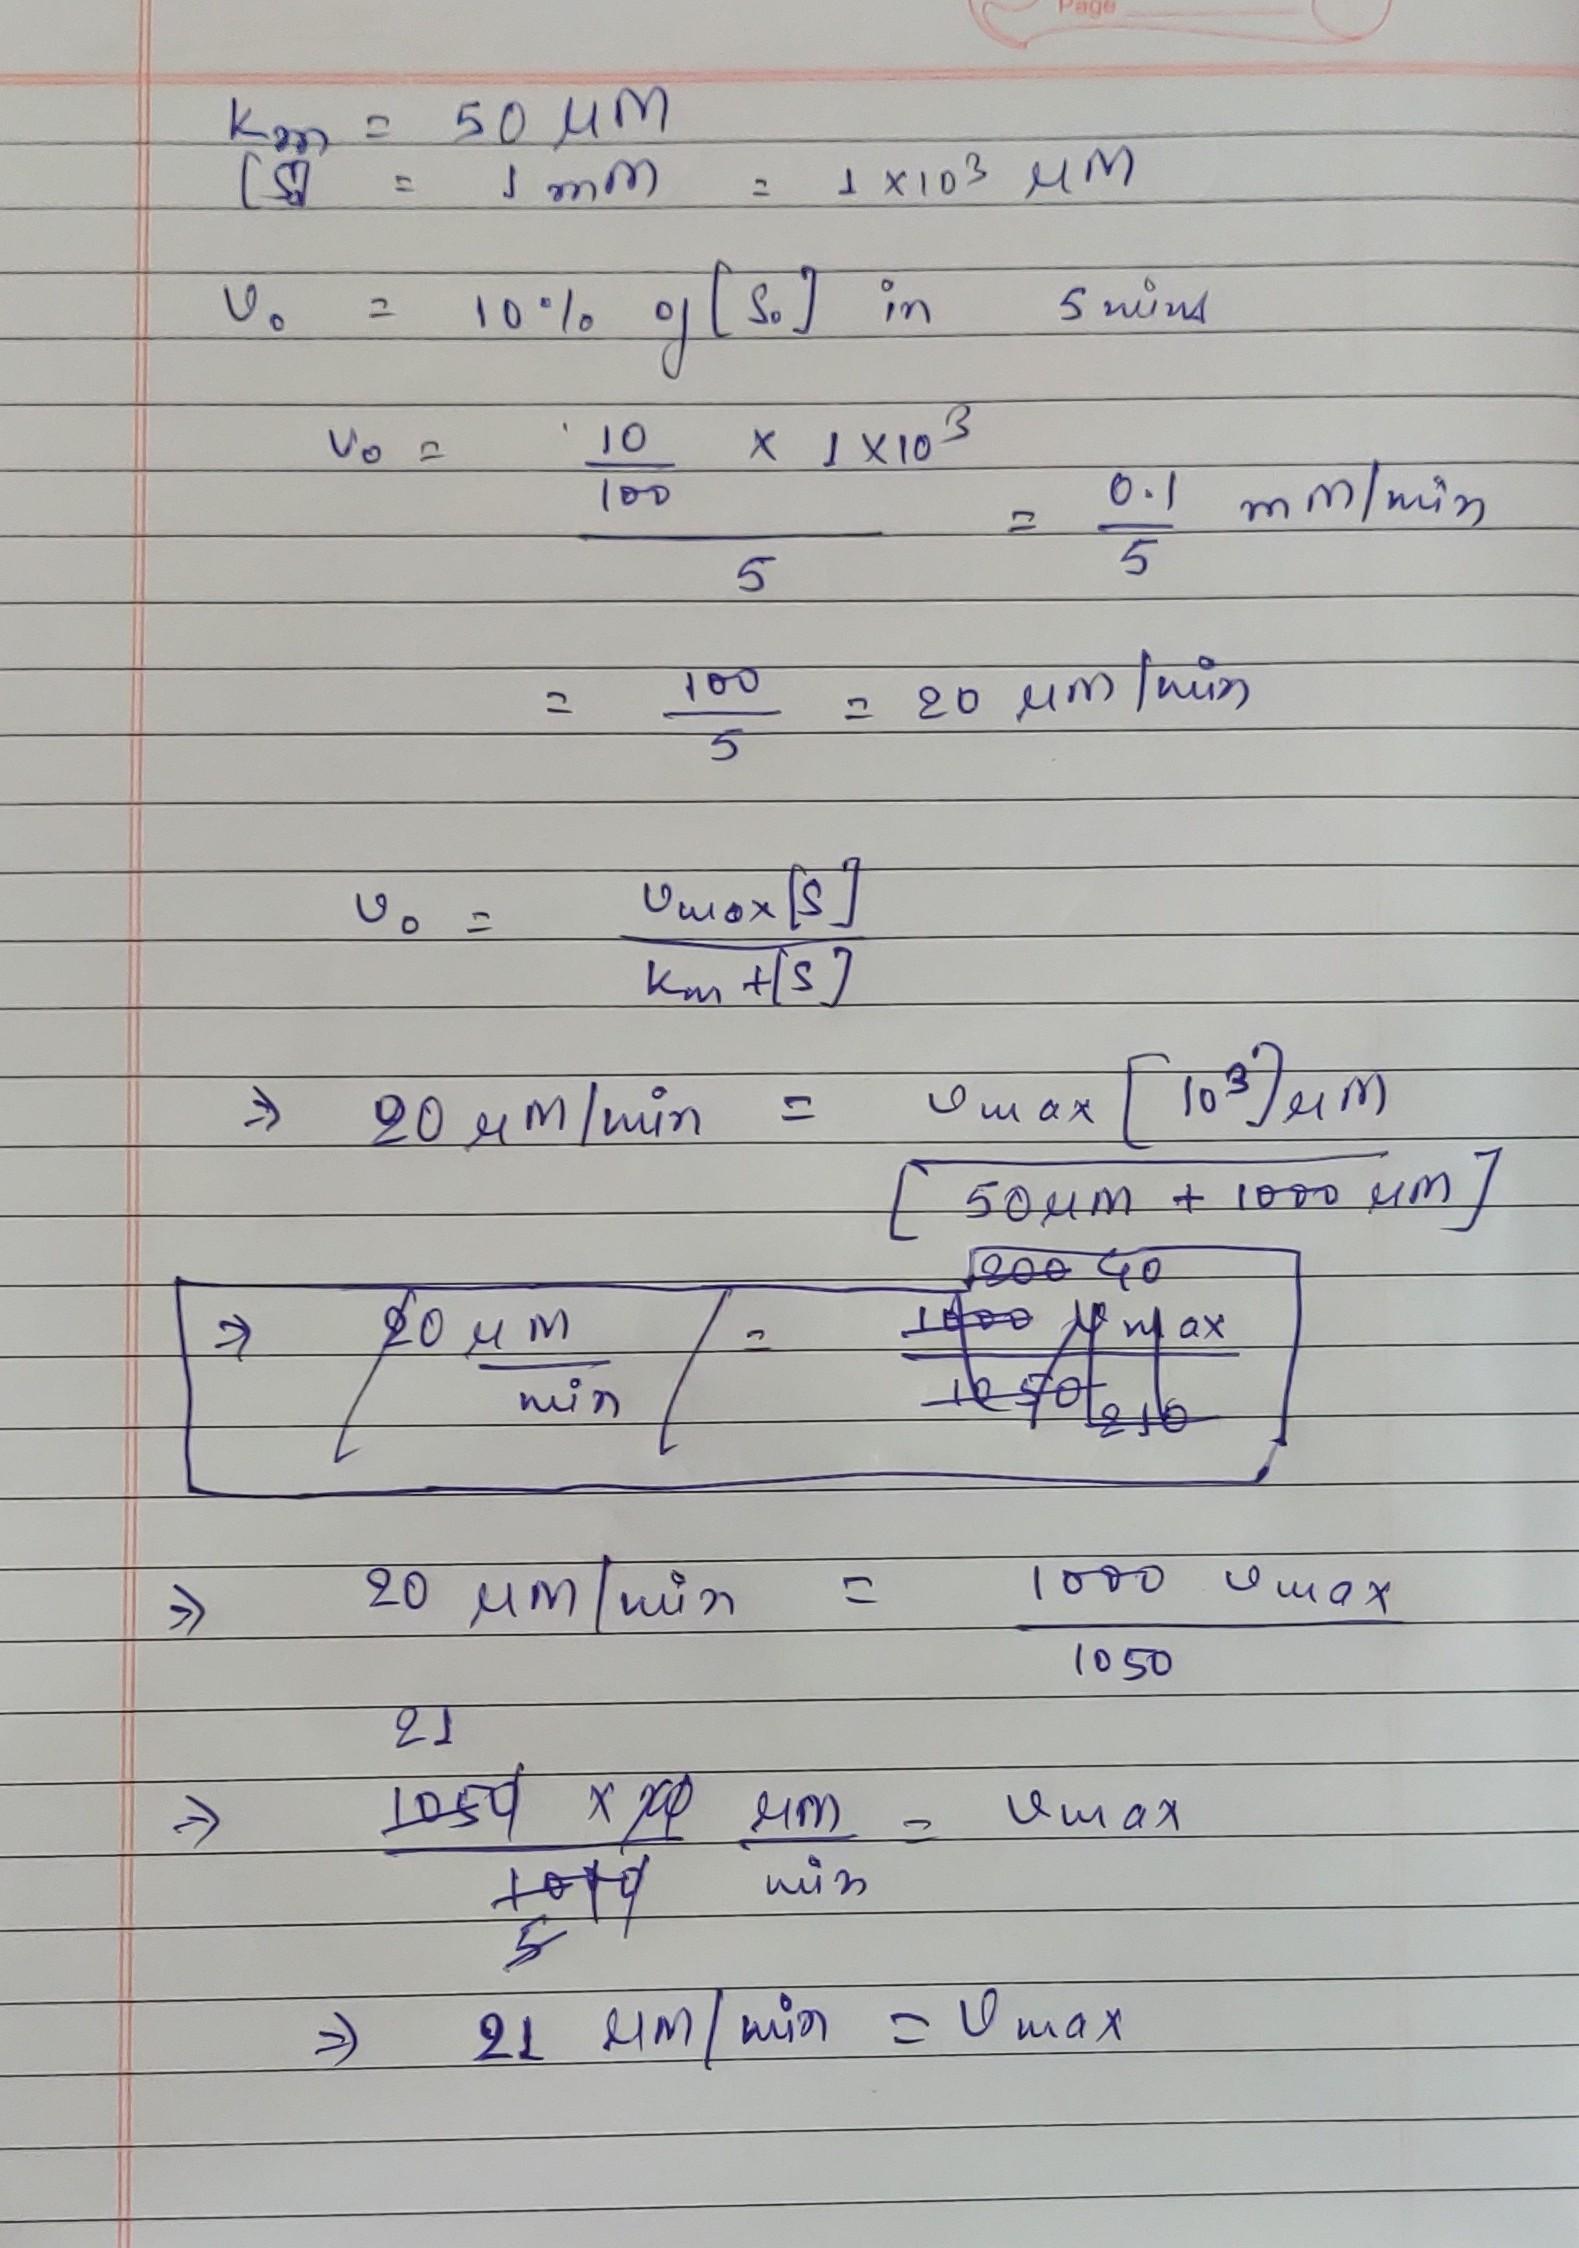 Page
Km = 50 μM
[S] = 1 mM = 1 × 10³ μM
v₀ = 10% of [S₀] in 5 mins
v₀ = 10/100 × 1 × 10³ / 5 = 0.1/5 mM/min
= 100/5 = 20 μM/min
v₀ = vmax [S] / Km + [S]
⇒ 20 μM/min = vmax [10³] μM / [50 μM + 1000 μM]
200 40
⇒ 20 μM/min = 1000 vmax / 1050 210
⇒ 20 μM/min = 1000 vmax / 1050
21
⇒ 1050 × 20 / 1000 μM/min = vmax
5
⇒ 21 μM/min = vmax